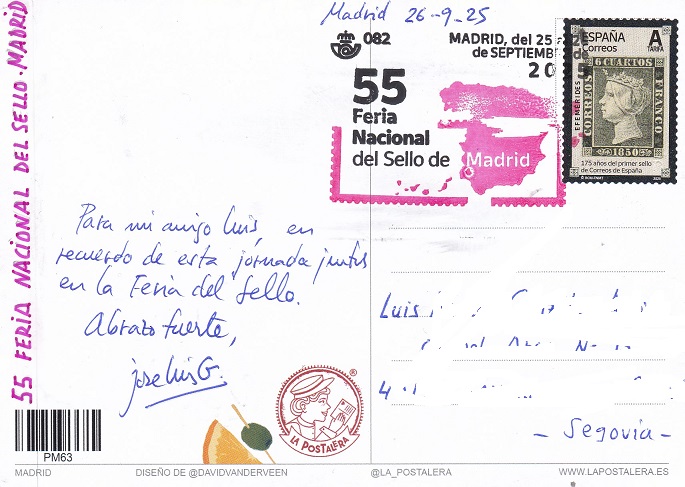 Madrid 26-9-25
082
MADRID, del 25
de SEPTIEMB de
2025
55
Feria
Nacional
del Sello de Madrid
ESPAÑA
Correos
A
TARIFA
EFEMÉRIDES
CORREOS
6 CUARTOS
FRANCO
1850
175 años del primer sello
de Correos de España
55 FERIA NACIONAL DEL SELLO · MADRID
Para mi amigo Luis, en
recuerdo de esta jornada juntos
en la Feria del Sello.
Abrazo fuerte,
Jose Luis G.
Luis
- Segovia -
LA POSTALERA
®
PM63
MADRID
DISEÑO DE @DAVIDVANDERVEEN
@LA_POSTALERA
WWW.LAPOSTALERA.ES